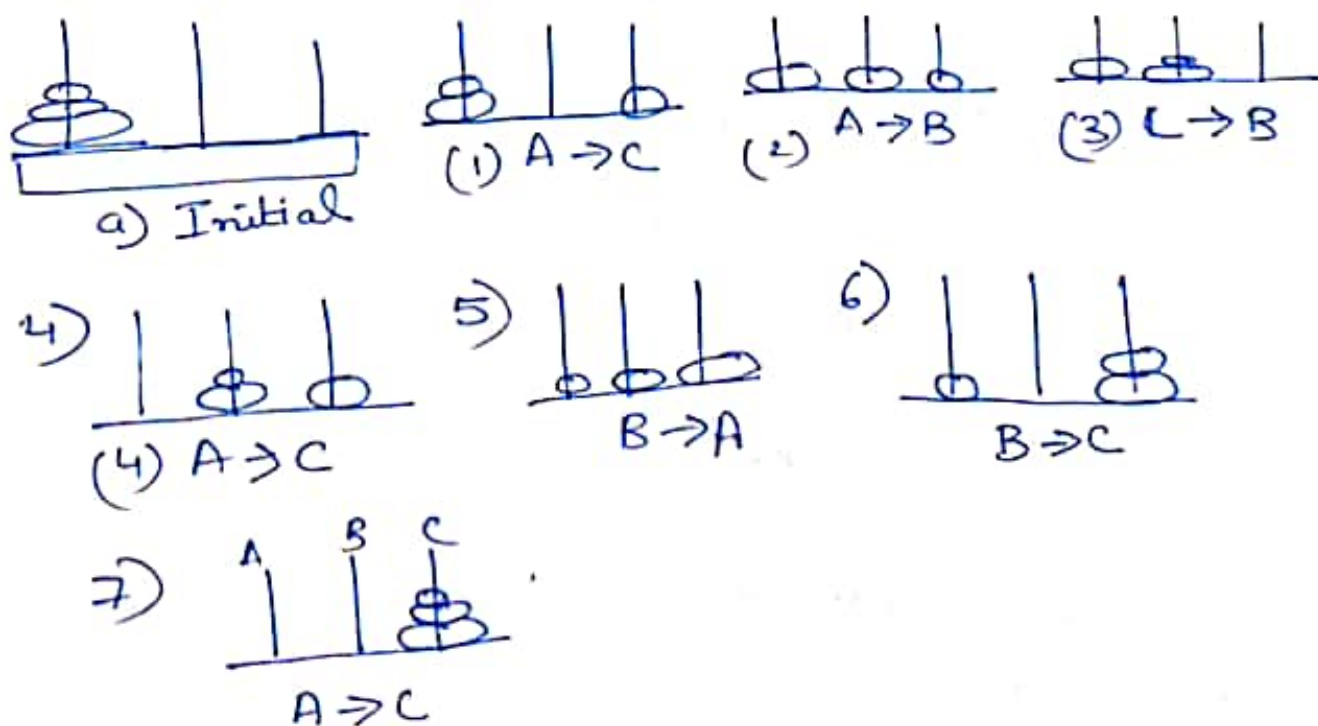 a) Initial
(1) A → C
(2) A → B
(3) C → B
4)
(4) A → C
5)
B → A
6)
B → C
7)
A B C
A → C